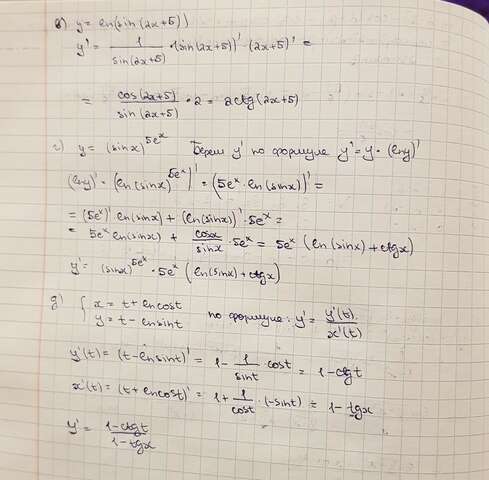 в) y = ln(sin(2x+5))
y' = 1/sin(2x+5) · (sin(2x+5))' · (2x+5)' =
= cos(2x+5)/sin(2x+5) · 2 = 2ctg(2x+5)
г) y = (sinx)^5e^x Берем y' по формуле y' = y · (lny)'
(lny)' = (ln(sinx)^5e^x)' = (5e^x · ln(sinx))' =
= (5e^x)' ln(sinx) + (ln(sinx))' · 5e^x =
= 5e^x ln(sinx) + cosx/sinx · 5e^x = 5e^x (ln(sinx) + ctgx)
y' = (sinx)^5e^x · 5e^x (ln(sinx) + ctgx)
д) { x = t + lncost
y = t - lnsint по формуле: y' = y'(t)/x'(t)
y'(t) = (t - lnsint)' = 1 - 1/sint cost = 1 - ctgt
x'(t) = (t + lncost)' = 1 + 1/cost · (-sint) = 1 - tgx
y' = 1-ctgt/1-tgx